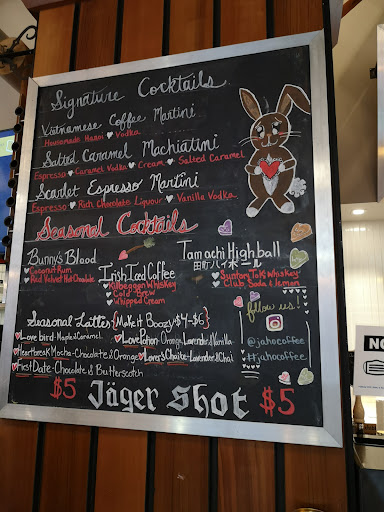 Signature Cocktails
Vietnamese Coffee Martini
Housemade Hanoi Vodka
Salted Caramel Machiatini
Espresso Caramel Vodka Cream Salted Caramel
Scarlet Espresso Martini
Espresso Rich Chocolate Liquour Vanilla Vodka
Seasonal Cocktails
Bunny's Blood
Coconut Rum
Red Velvet Hot Chocolate
Irish Iced Coffee
Kilbeggan Whiskey
Cold Brew
Whipped Cream
Tamachi Highball
田町ハイボール
Suntory Toki Whiskey
Club Soda & lemon
follow us!
@jahocoffee
#jahocoffee
Seasonal Lattes {Make it Boozy $4-$6}
Love bird-Maple & Caramel
Love Potion-Orange, Lavender & Vanilla
Heartbreak Mocha-Chocolate & Orange
Lover's Choice-Lavender & Chai
First Date-Chocolate & Butterscotch
$5 Jäger Shot $5
NO